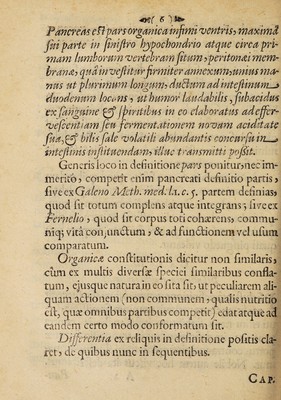 ( 6 )
Pancreas est pars organica infimi ventris, maximâ
sui parte in sinistro hypochondrio atque circa pri-
mam lumborum vertebram situm, peritonæi mem-
branæ, quâ investitur firmiter annexum, unius ma-
nus ut plurimum longum, ductum ad intestinum
duodenum locans, ut humor laudabilis, subacidus
ex sanguine & spiritibus in eo elaboratus ad effer-
vescentiam seu fermentationem novam aciditate
sua, & bilis sale volatili abundantis concursu in
intestinis instituendam, illuc transmitti possit.
Generis loco in definitione pars ponitur, nec im-
merito, competit enim pancreati definitio partis,
sive ex Galeno Meth. med. l. 1. c. 5. partem definias,
quod sit totum complens atque integrans; sive ex
Fernelio, quod sit corpus toti cohærens, commu-
niq; vitâ conjunctum, & ad functionem vel usum
comparatum.
Organicæ constitutionis dicitur non similaris,
cùm ex multis diversæ speciei similaribus confla-
tum, ejusque natura in eo sita sit, ut peculiarem ali-
quam actionem (non communem, qualis nutritio
est, quæ omnibus partibus competit) edat atque ad
eandem certo modo conformatum sit.
Differentia ex reliquis in definitione positis cla-
ret, de quibus nunc in sequentibus.
CAP.